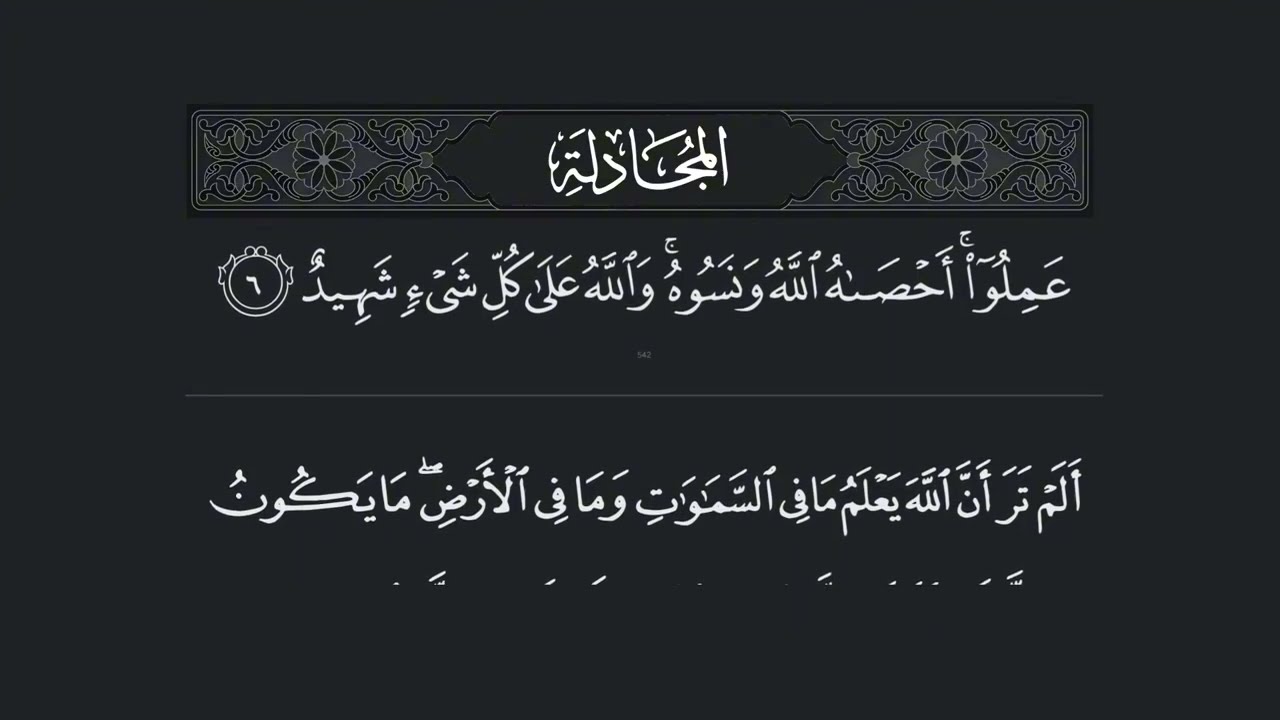 المجَادلةِ
عَمِلُوٓا۟ۚ أَحۡصَىٰهُ ٱللَّهُ وَنَسُوهُۚ وَٱللَّهُ عَلَىٰ كُلِّ شَىۡءٖ شَهِيدٌ ٦
542
أَلَمۡ تَرَ أَنَّ ٱللَّهَ يَعۡلَمُ مَا فِى ٱلسَّمَٰوَٰتِ وَمَا فِى ٱلۡأَرۡضِۖ مَا يَكُونُ